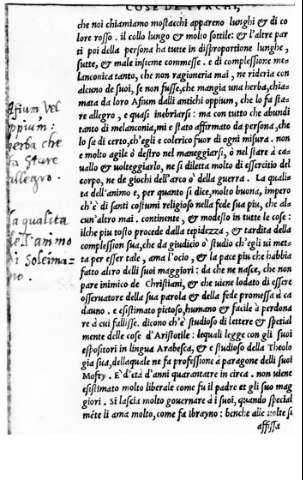 COSE DE TVRCHI,
che noi chiamiamo mostacchi appareno lunghi & di co
lore rosso. il collo lungo & molto sottile: & l'altre par
ti poi della persona ha tutte in disproportione lunghe,
sutte, & male insieme commesse. e di complessione me-
lanconica tanto, che non ragioneria mai, ne rideria con
alcuno de suoi, se non fusse, che mangia una herba, chia-
mata da loro Asium dalli antichi oppium, che lo fa sta-
re allegro, e quasi inebriarsi: ma con tutto che abundi
tanto di melanconia, mi è stato affirmato da persona, che
lo sa di certo, ch'egli e colerico fuor di ogni misura. non
e molto agile ò destro nel maneggiarsi, ò nel stare à ca-
uallo & uolteggiarlo, ne si diletta molto di essercitio del
corpo, ne de giochi dell'arco ò della guerra. La qualita
ta dell'animo è, per quanto si dice, molto buona, impero
ch'è di santi costumi religioso nella fede sua piu, che alo
cun'altro mai. continente, & modesto in tutte le cose:
ilche piu tosto procede dalla tepidezza, & tardita della
complession sua, che da giudicio ò studio ch'egli ui met-
ta per esser tale, ama l'ocio, & la pace piu che habbia
fatto alcro delli suoi maggiori: da che ne nasce, che non
pare inimico de Christiani, & che uiene lodato di essere
osseruatore della sua parola & della fede promessa à ca
dauno. e estimato pietoso, humano & facile à perdona
re à cui fallisse. dicono ch'è studioso di lettere & special
mente delle cose d'Aristotile: lequali legge con gli suoi
espositori in lingua Arabesca, & e studioso della Theolo
gia sua, dellaquale ne fa professione à paragone delli suoi
Mofty. E' d'età d'anni quarantatre in circa. non uiene
estimato molto liberale come fu il padre et gli suo mag
giori. Si lascia molto gouernare à i suoi, quando special
mēte li ama molto, come fa Ibrayno: benche alle uolte si
affissa
Asium vel
oppium:
herba che
fa stare
allegro.
La qualita
de l'animo
di Soleima-
no.